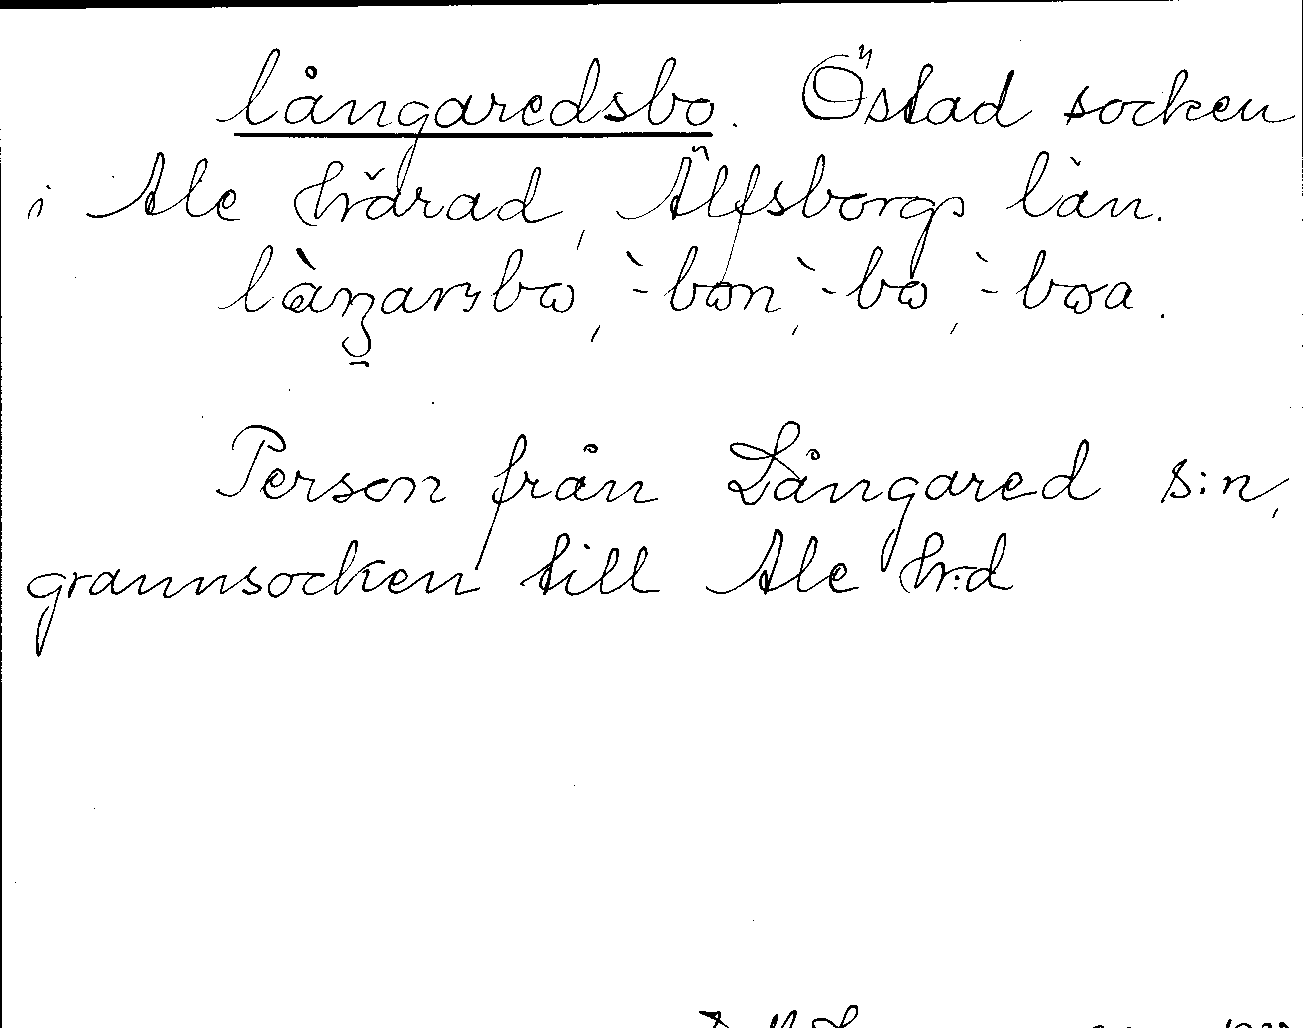 långaredsbo. Östad socken
i Ale härad, Älfsborgs län.
-bon, -bo, -boa.
Person från Långared s:n,
grannsocken till Ale h:d